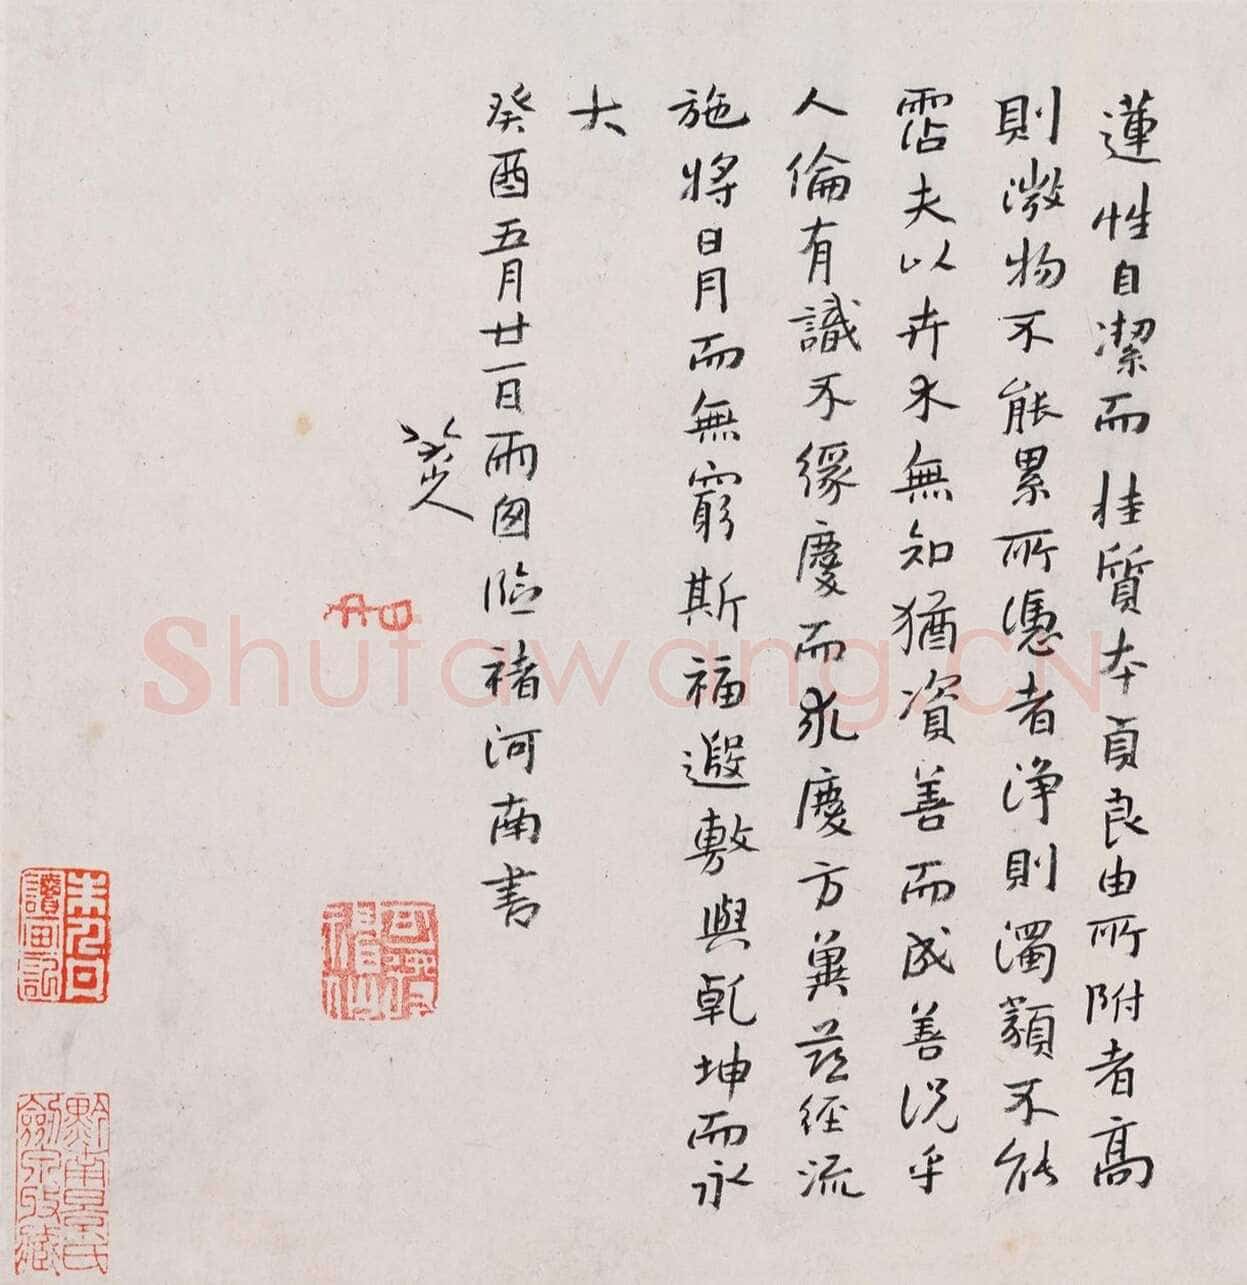 蓮性自潔而桂質本貞良由所附者高
則微物不能累所憑者浄則濁類不能
霑夫以卉木無知猶資善而成善況乎
人倫有識不緣慶而求慶方冀茲經流
施將日月而無窮斯福遐敷與乾坤而永
大
癸酉五月廿一日雨囱臨褚河南書
八大山人
可得神仙
黔南景氏劍泉攷藏
Shufawang.CN